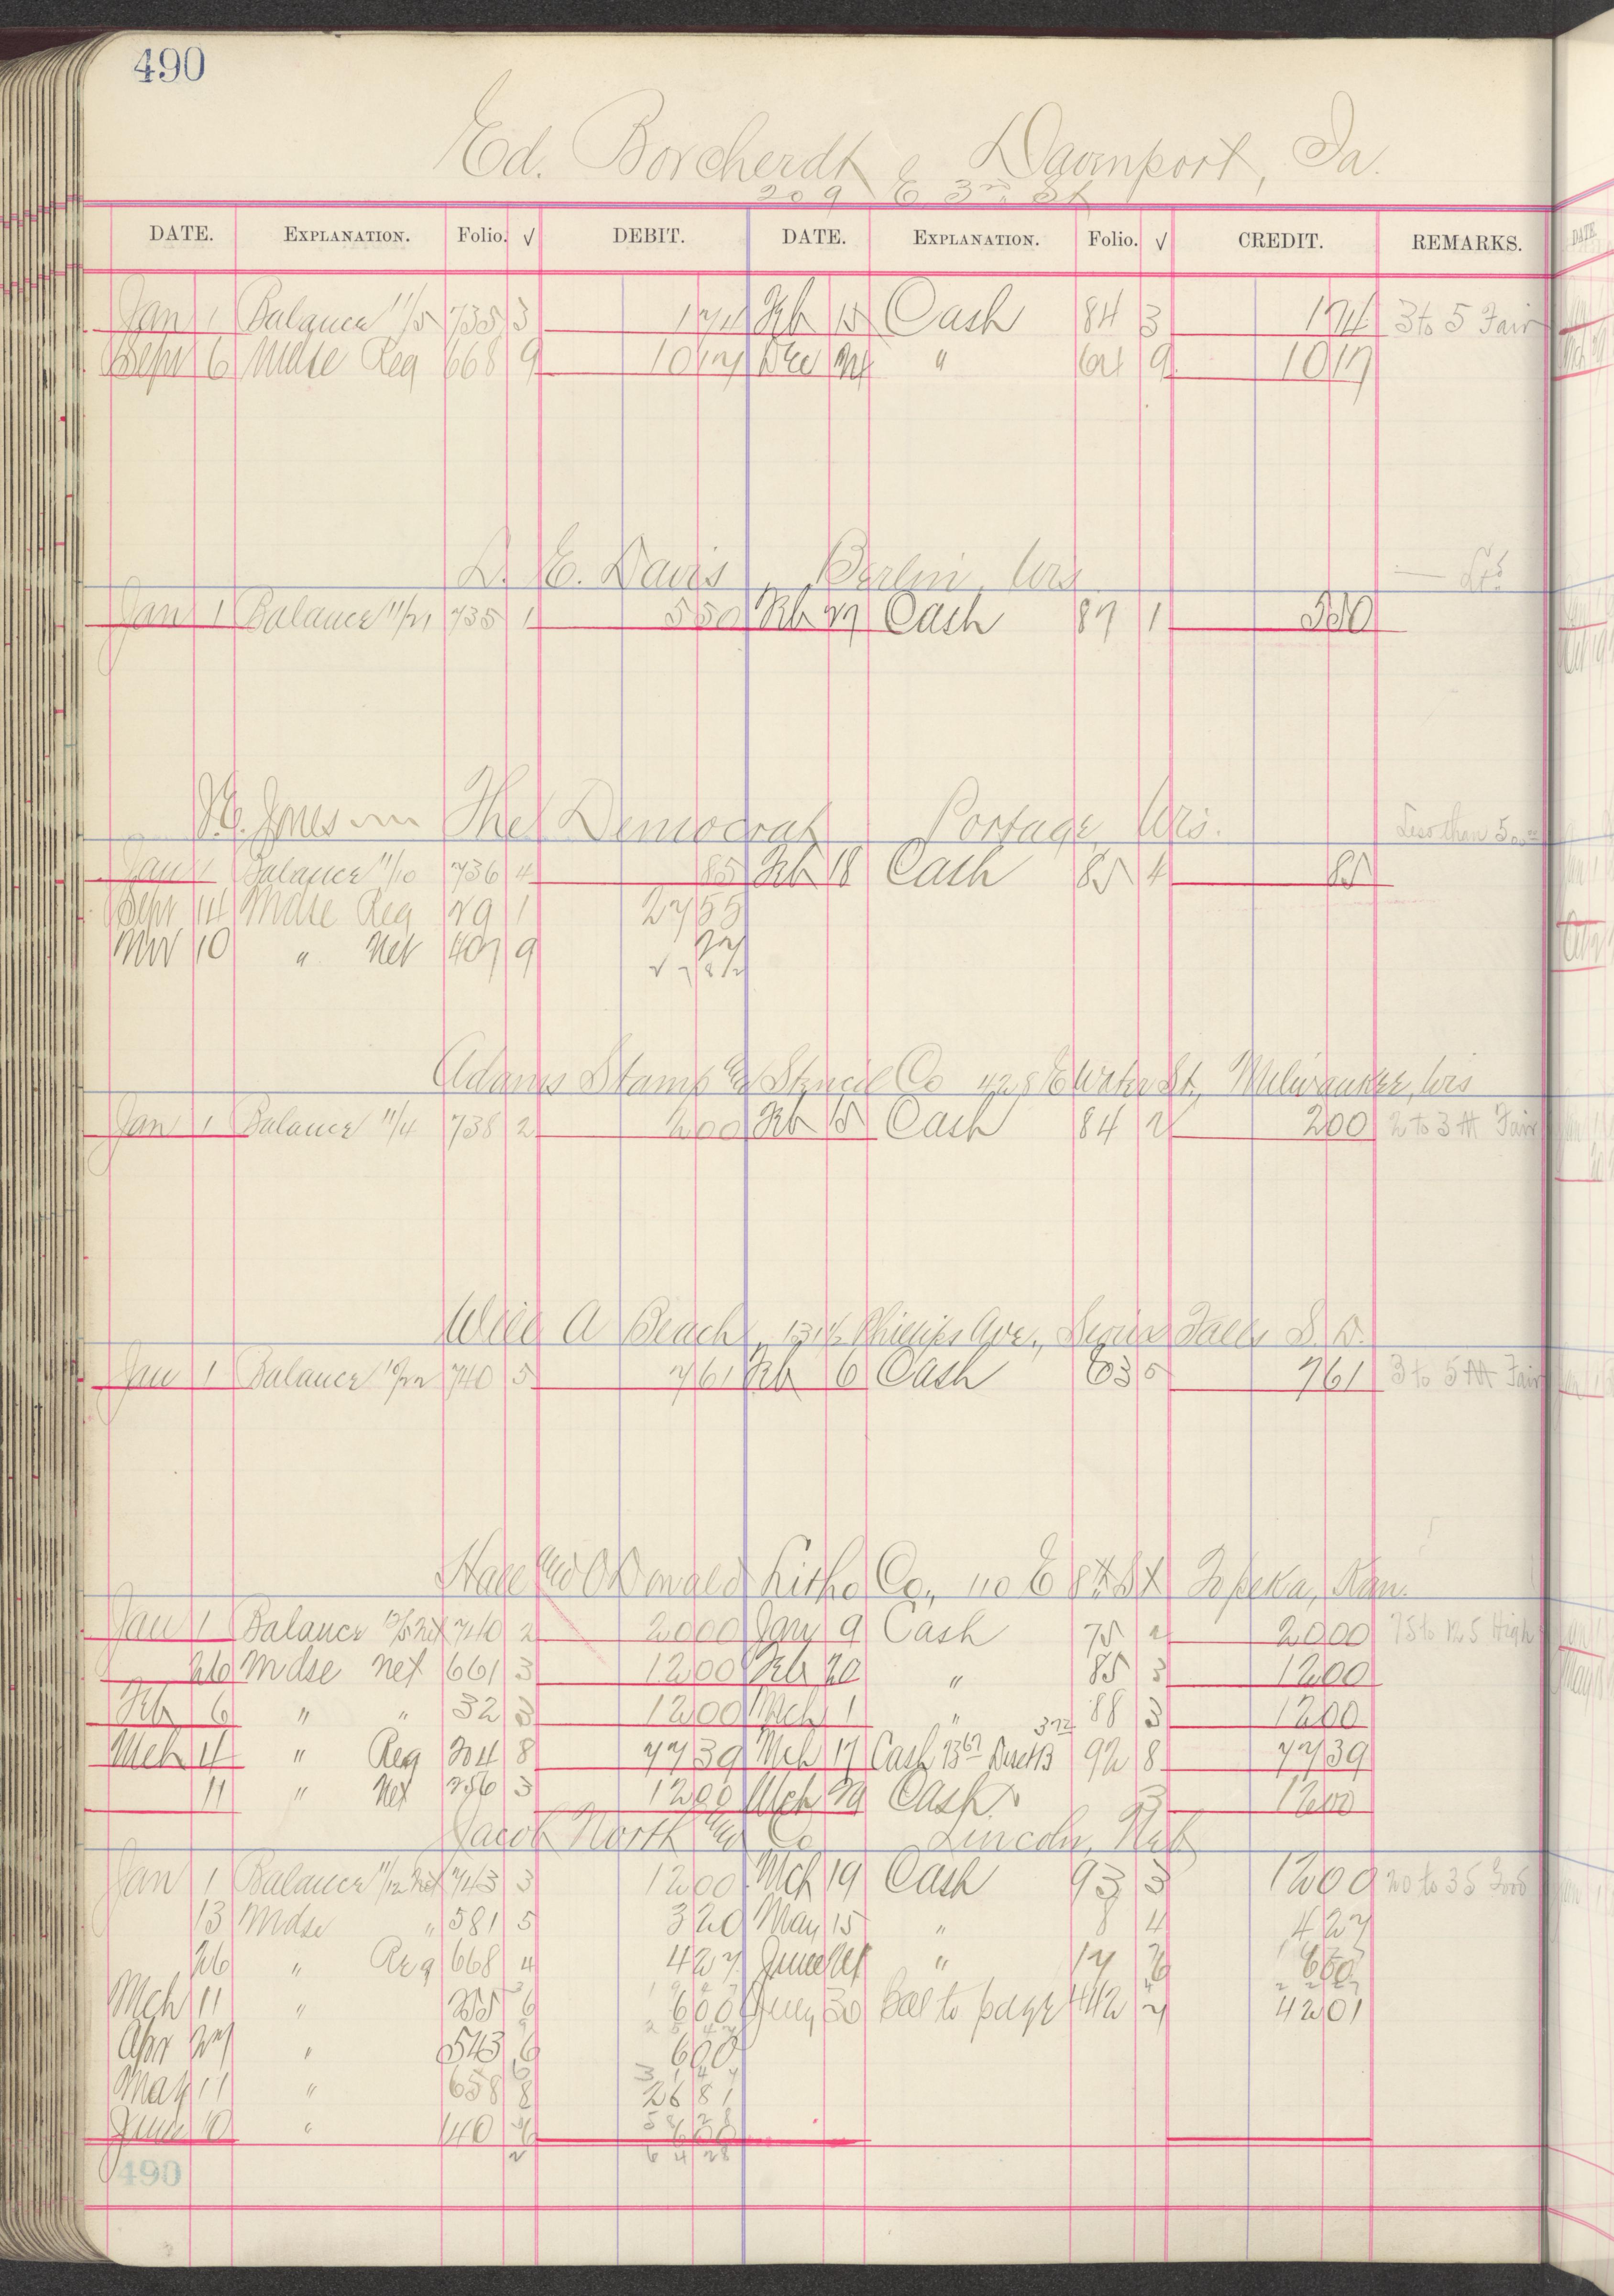 490
Ed. Borcherdt, Davenport, Ia.
209 E 3rd St
DATE. EXPLANATION. Folio. √ DEBIT. DATE. EXPLANATION. Folio. √ CREDIT. REMARKS.
Jan 1 Balance 11/5 735 3 174 Feb 15 Cash 84 3 174 3 to 5 Fair
Sept 6 Mdse Reg 668 9 1017 Dec 9 1017
L. E. Davis, Berlin, Wis
Jan 1 Balance 11/21 735 1 550 Feb 27 Cash 87 1 550
J. E. Jones The Democrat Portage, Wis. Less than 500
Jan 1 Balance 11/10 736 4 85 Feb 18 Cash 85 4 85
Sept 14 Mdse Reg 29 1 2755
Nov 10 " Net 407 9
Adams Stamp & Stencil Co 428 E Water St, Milwaukee, Wis
Jan 1 Balance 11/4 738 2 200 Feb 15 Cash 84 2 200 2 to 3 M Fair
Will A Beach, Phillips Ave., Sioux Falls S. D.
Jan 1 Balance 740 5 761 Feb 6 Cash 83 5 761 3 to 5 M Fair
Hall & O'Donald Litho Co., 110 E 8th St Topeka, Kan.
Jan 1 Balance 740 2 2000 Jan 9 Cash 75 2 2000 75 to 125 High
26 Mdse Net 661 3 1200 Feb 20 " 85 3 1200
Feb 6 " " 32 3 1200 Mch 1 " 88 3 1200
Mch 4 " Reg 204 8 7739 Mch 17 Cash 92 8 7739
11 " Net 256 3 1200 Mch 29 Cash 3 1200
Jacob North & Co Lincoln, Neb
Jan 1 Balance 11/12 Net 743 3 1200 Mch 19 Cash 93 3 1200 20 to 35 Good
13 Mdse " 581 5 320 May 15 " 8 4 427
26 " Reg 668 4 427 June " 17 6 660
Mch 11 " 255 6 600 July 30 Bal to page 442 7 4201
Apr 27 " 543 6 600
May 11 " 658 8 2681
June 10 " 140 6
6428
490